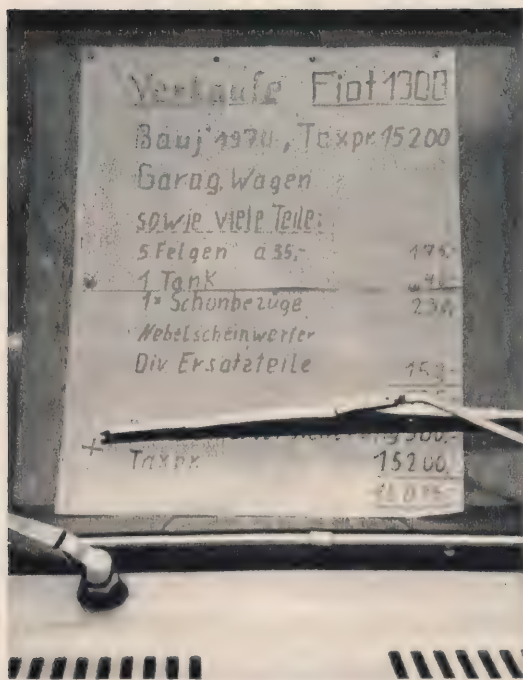 Verkaufe Fiat 1300
Bauj. 1970, Taxpr. 15200
Garag. Wagen
sowie viele Teile:
5 Felgen a 35,- 175,-
1 Tank
1x Schonbezüge
Nebelscheinwerfer
Div Ersatzteile
+ Taxpr. 15200,-